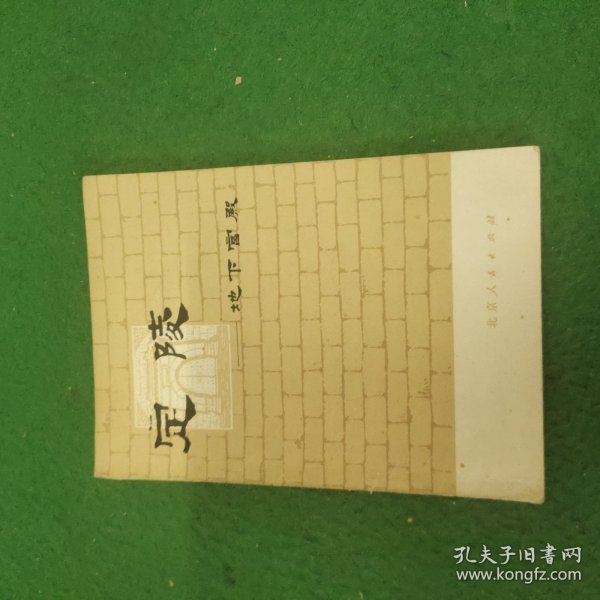 定陵
地下宫殿
北京人民出版社
孔夫子旧书网
www.kongfz.com